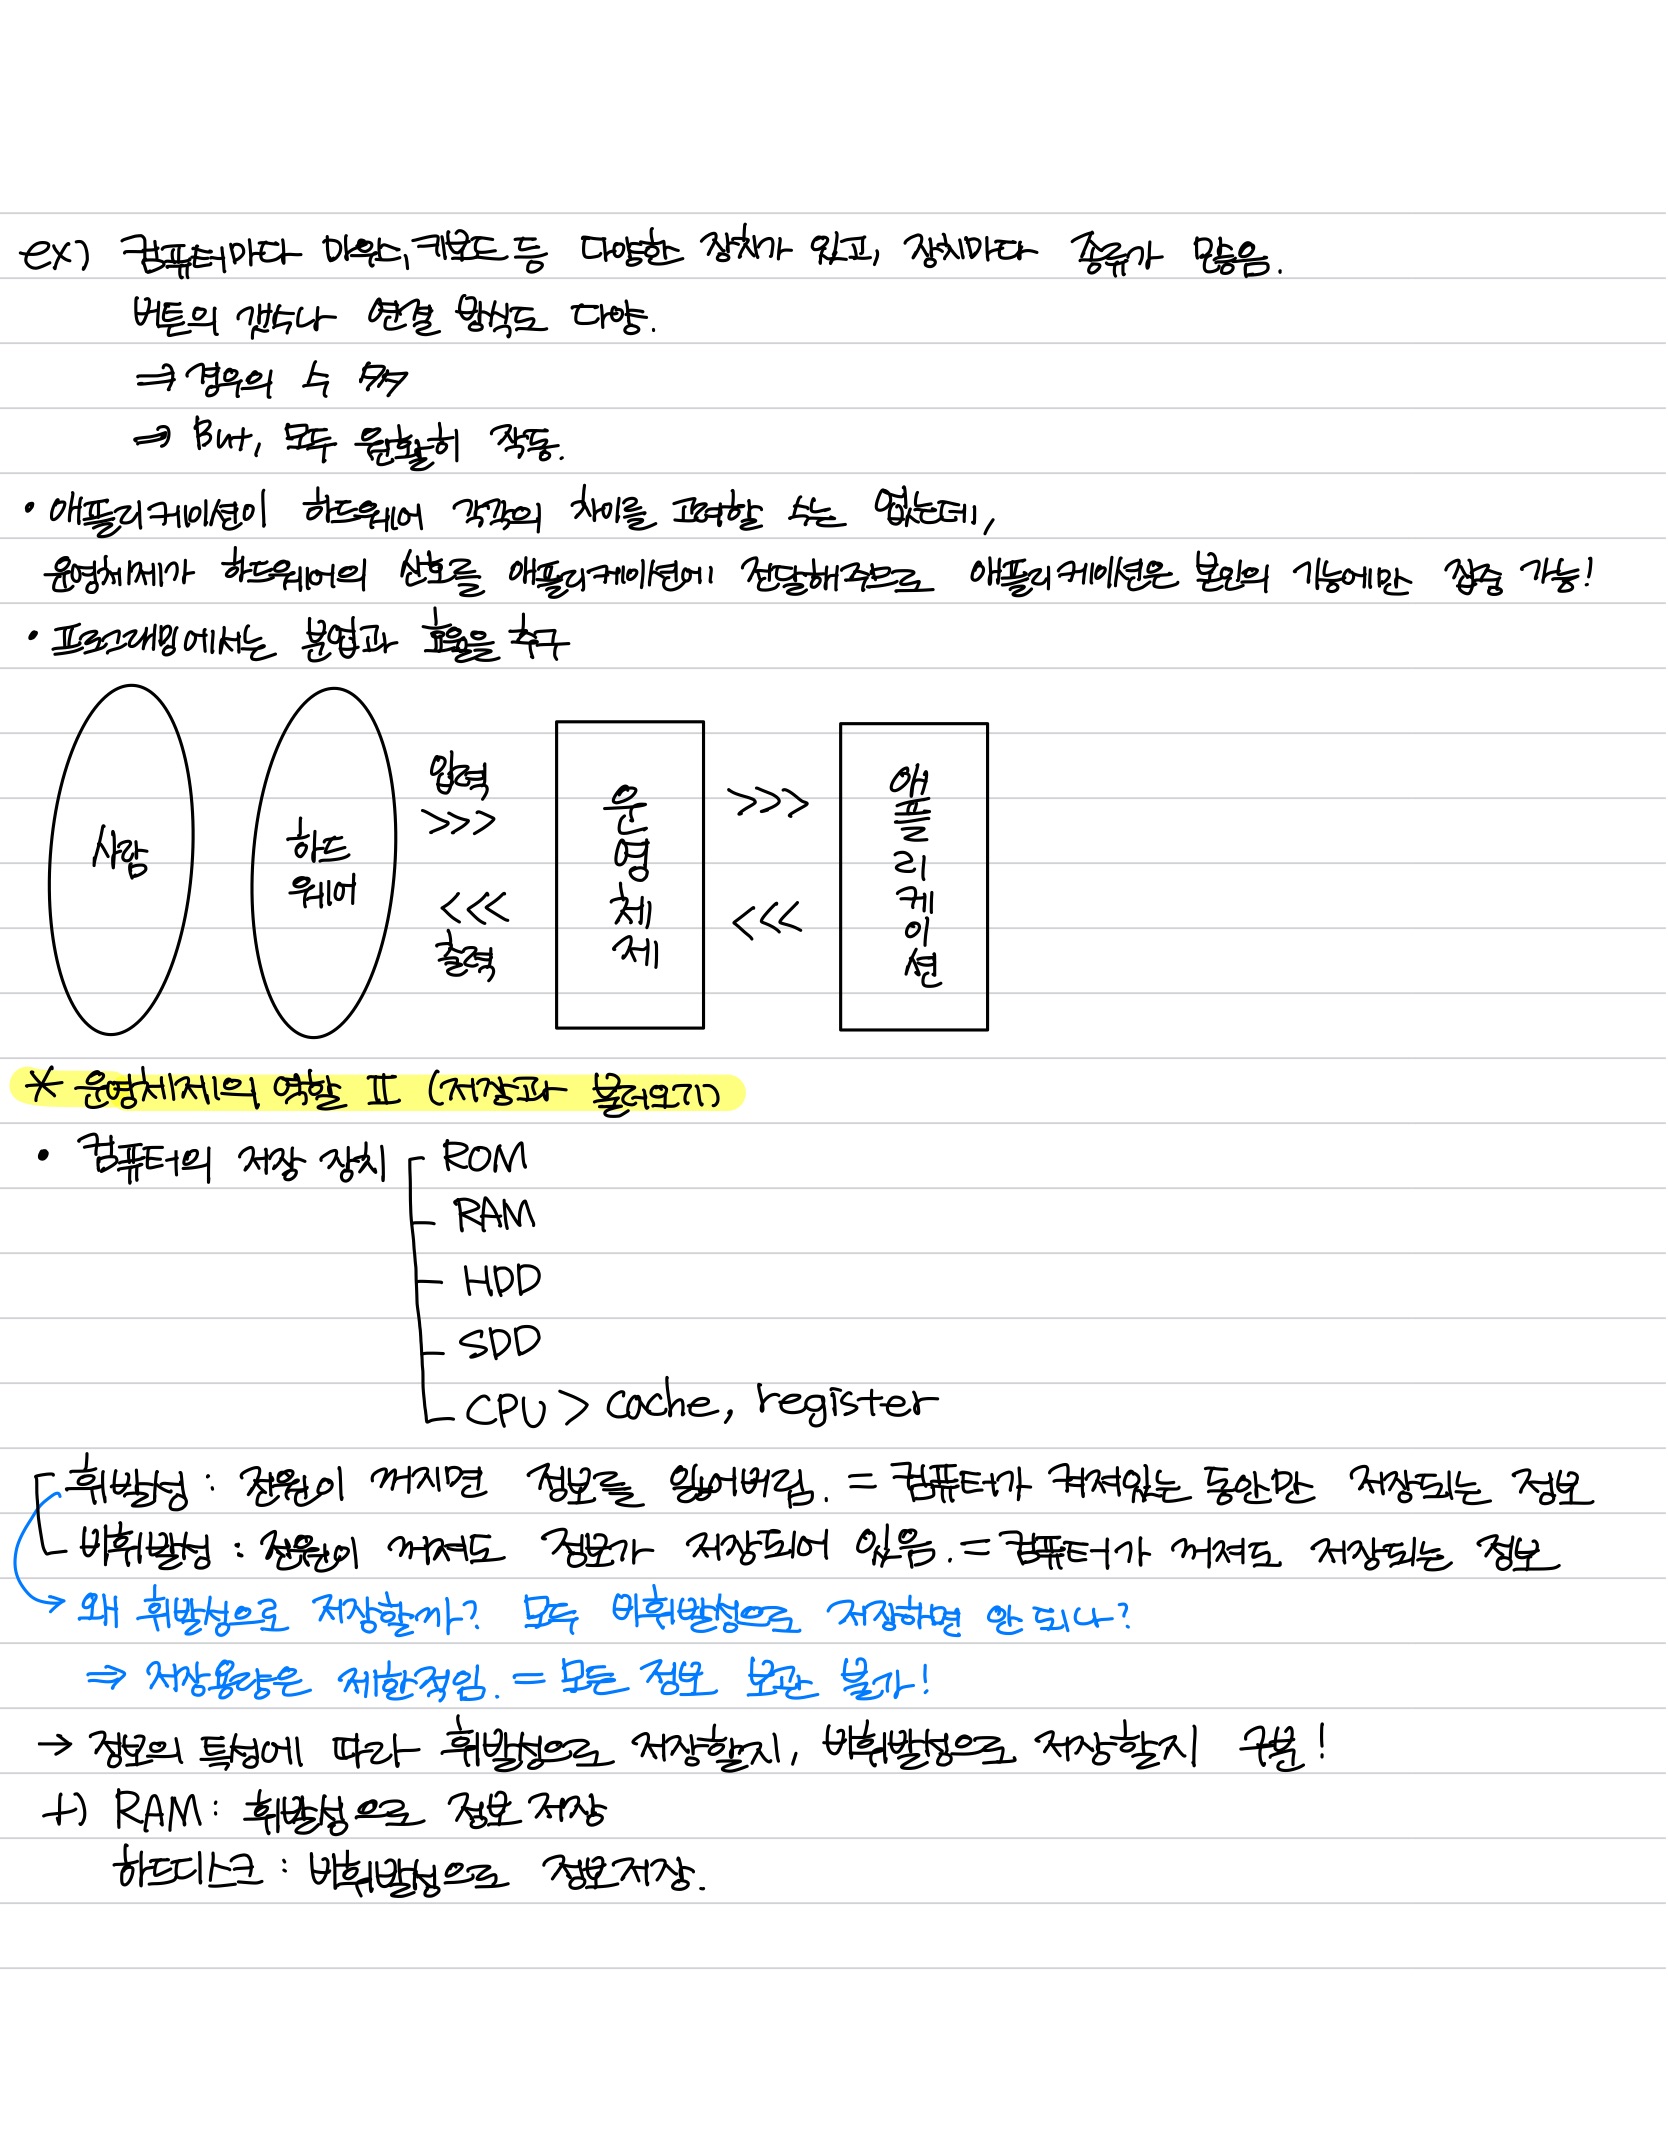 ex) 컴퓨터마다 마우스, 키보드 등 다양한 장치가 있고, 장치마다 종류가 많음.
버튼의 갯수나 연결 방식도 다양.
⇒ 경우의 수 多
⇒ But, 모두 원활히 작동.
• 애플리케이션이 하드웨어 각각의 차이를 고려할 수는 없는데,
운영체제가 하드웨어의 신호를 애플리케이션에 전달해주므로 애플리케이션은 본인의 기능에만 집중 가능!
• 프로그래밍에서는 분업과 효율을 추구
사람
하드
웨어
입력
>>>
<<<
출력
운영체제
>>>
<<<
애플리케이션
* 운영체제의 역할 Ⅱ (저장과 불러오기)
• 컴퓨터의 저장 장치 ROM
RAM
HDD
SDD
CPU > cache, register
휘발성 : 전원이 꺼지면 정보를 잃어버림. = 컴퓨터가 켜져있는 동안만 저장되는 정보
비휘발성 : 전원이 꺼져도 정보가 저장되어 있음. = 컴퓨터가 꺼져도 저장되는 정보
→ 왜 휘발성으로 저장할까? 모두 비휘발성으로 저장하면 안 되나?
⇒ 저장용량은 제한적임. = 모든 정보 보관 불가!
→ 정보의 특성에 따라 휘발성으로 저장할지, 비휘발성으로 저장할지 구분!
+) RAM : 휘발성으로 정보 저장
하드디스크 : 비휘발성으로 정보저장.